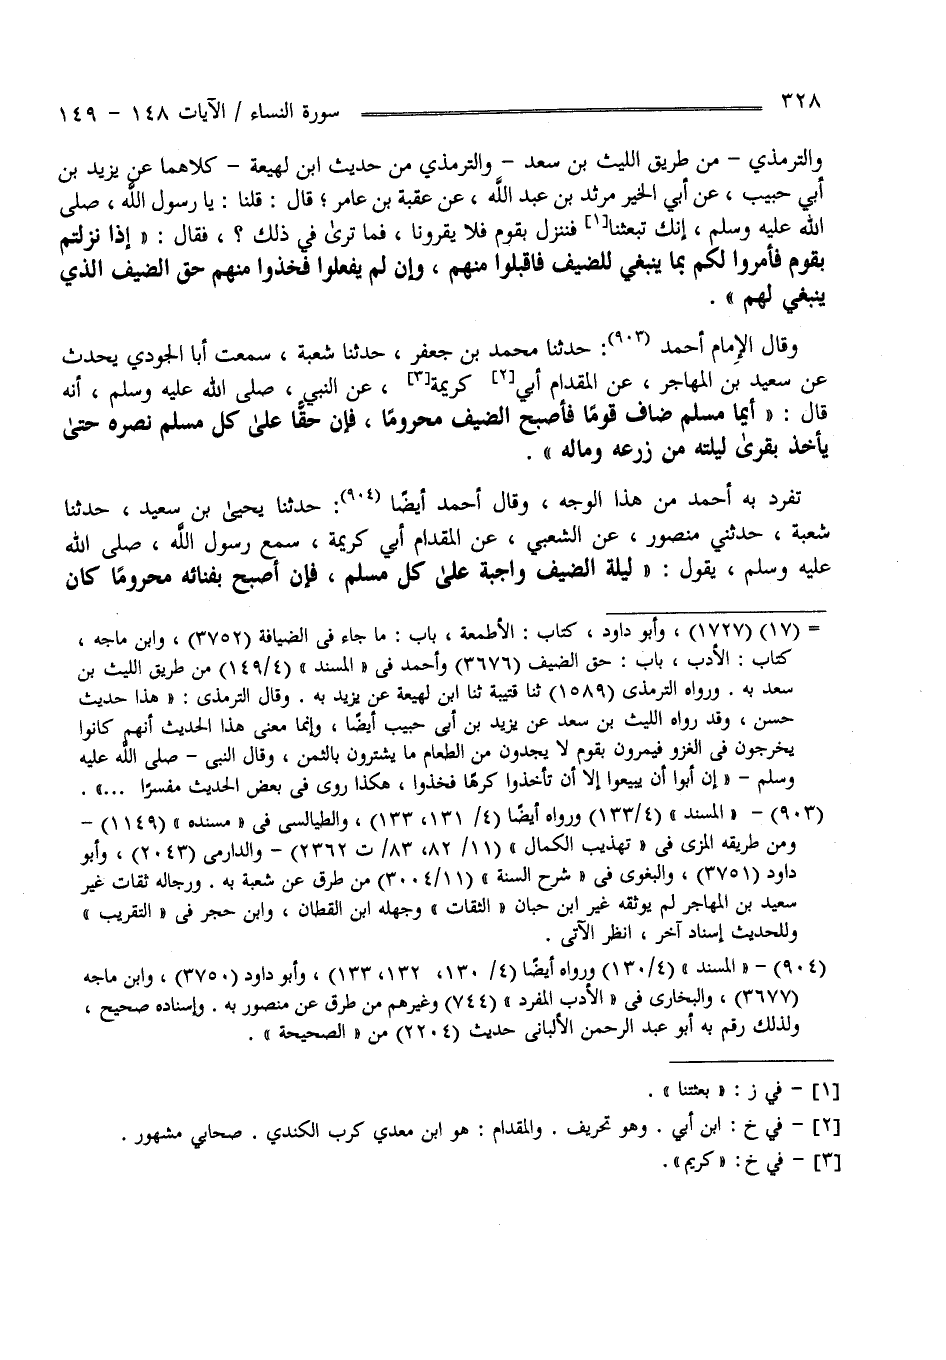 ٣٢٨ سورة النساء / الآيات ١٤٨ - ١٤٩
والترمذي - من طريق الليث بن سعد - والترمذي من حديث ابن لهيعة - كلاهما عن يزيد بن
أبي حبيب ، عن أبي الخير مرثد بن عبد اللَّه ، عن عقبة بن عامر ؛ قال : قلنا : يا رسول اللَّه ، صلى
الله عليه وسلم ، إنك تبعثنا[١] فننزل بقوم فلا يقرونا ، فما ترىٰ في ذلك ؟ ، فقال : « إذا نزلتم
بقوم فأمروا لكم بما ينبغي للضيف فاقبلوا منهم ، وإن لم يفعلوا فخذوا منهم حق الضيف الذي
ينبغي لهم » .
وقال الإمام أحمد (٩٠٣): حدثنا محمد بن جعفر ، حدثنا شعبة ، سمعت أبا الجودي يحدث
عن سعيد بن المهاجر ، عن المقدام أبي[٢] كريمة[٣] ، عن النبي ، صلى الله عليه وسلم ، أنه
قال : « أيما مسلم ضاف قومًا فأصبح الضيف محرومًا ، فإن حقًّا علىٰ كل مسلم نصره حتىٰ
يأخذ بقرىٰ ليلته من زرعه وماله » .
تفرد به أحمد من هذا الوجه ، وقال أحمد أيضًا (٩٠٤): حدثنا يحيىٰ بن سعيد ، حدثنا
شعبة ، حدثني منصور ، عن الشعبي ، عن المقدام أبي كريمة ، سمع رسول اللَّه ، صلى الله
عليه وسلم ، يقول : « ليلة الضيف واجبة علىٰ كل مسلم ، فإن أصبح بفنائه محرومًا كان
= (١٧) (١٧٢٧) ، وأبو داود ، كتاب : الأطعمة ، باب : ما جاء فى الضيافة (٣٧٥٢) ، وابن ماجه ،
كتاب : الأدب ، باب : حق الضيف (٣٦٧٦) وأحمد فى « المسند » (١٤٩/٤) من طريق الليث بن
سعد به . ورواه الترمذى (١٥٨٩) ثنا قتيبة ثنا ابن لهيعة عن يزيد به . وقال الترمذى : « هذا حديث
حسن ، وقد رواه الليث بن سعد عن يزيد بن أبى حبيب أيضًا ، وإنما معنى هذا الحديث أنهم كانوا
يخرجون فى الغزو فيمرون بقوم لا يجدون من الطعام ما يشترون بالثمن ، وقال النبى - صلى اللَّه عليه
وسلم - « إن أبوا أن يبيعوا إلا أن تأخذوا كرهًا فخذوا ، هكذا روى فى بعض الحديث مفسرًا ...» .
(٩٠٣) - « المسند » (١٣٣/٤) ورواه أيضًا (٤/ ١٣١، ١٣٣) ، والطيالسى فى « مسنده » (١١٤٩) -
ومن طريقه المزى فى « تهذيب الكمال » (١١/ ٨٢، ٨٣/ ت ٢٣٦٢) - والدارمى (٢٠٤٣) ، وأبو
داود (٣٧٥١) ، والبغوى فى « شرح السنة » (٣٠٠٤/١١) من طرق عن شعبة به . ورجاله ثقات غير
سعيد بن المهاجر لم يوثقه غير ابن حبان « الثقات » وجهله ابن القطان ، وابن حجر فى « التقريب »
وللحديث إسناد آخر ، انظر الآتى .
(٩٠٤) - « المسند » (١٣٠/٤) ورواه أيضًا (٤/ ١٣٠، ١٣٢، ١٣٣) ، وأبو داود (٣٧٥٠) ، وابن ماجه
(٣٦٧٧) ، والبخارى فى « الأدب المفرد » (٧٤٤) وغيرهم من طرق عن منصور به . وإسناده صحيح ،
ولذلك رقم به أبو عبد الرحمن الألبانى حديث (٢٢٠٤) من « الصحيحة » .
[١] - في ز : « بعثتنا » .
[٢] - في خ : ابن أبي . وهو تحريف . والمقدام : هو ابن معدي كرب الكندي . صحابي مشهور .
[٣] - في خ : « كريم» .